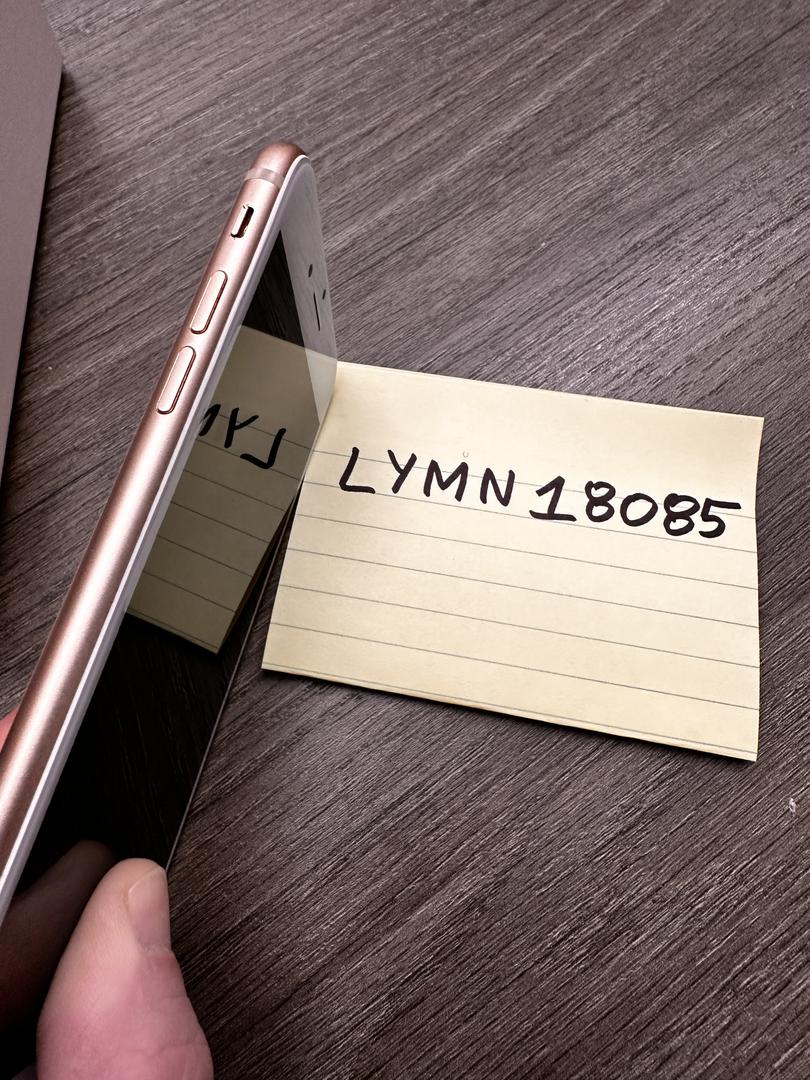 LYMN 18085